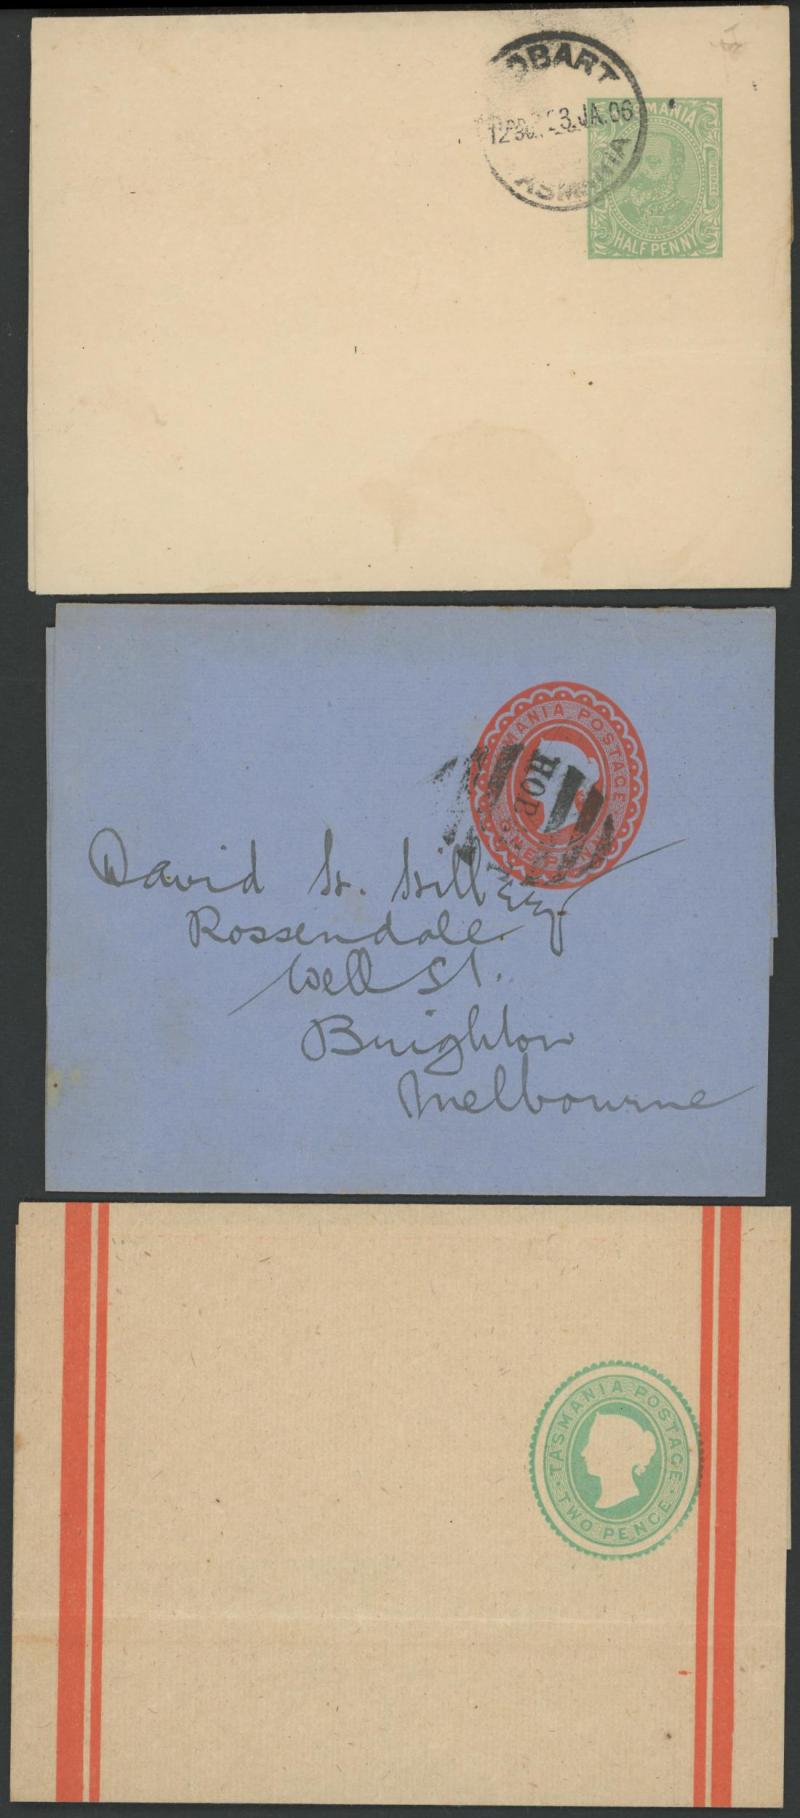 OBART
23.JA.06
TASMANIA
TASMANIA
HALFPENNY
TASMANIA POSTAGE
ONE PENNY
HOB
David H. Hill Esq
Rossendale
Well St.
Brighton
Melbourne
TASMANIA POSTAGE
TWO PENCE